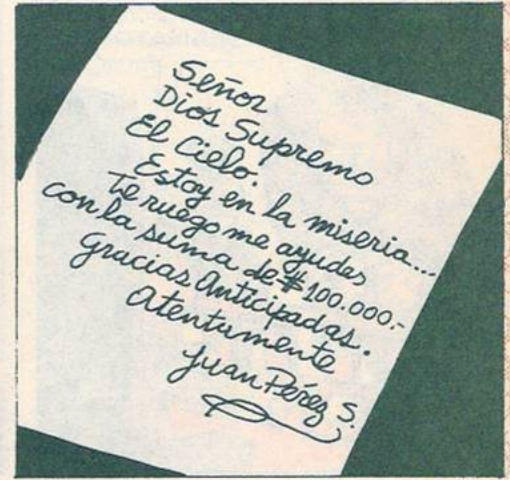 Señor
Dios Supremo
El Cielo.
Estoy en la miseria...
te ruego me ayudes
con la suma de $100.000.-
Gracias Anticipadas.
Atentamente
Juan Pérez S.